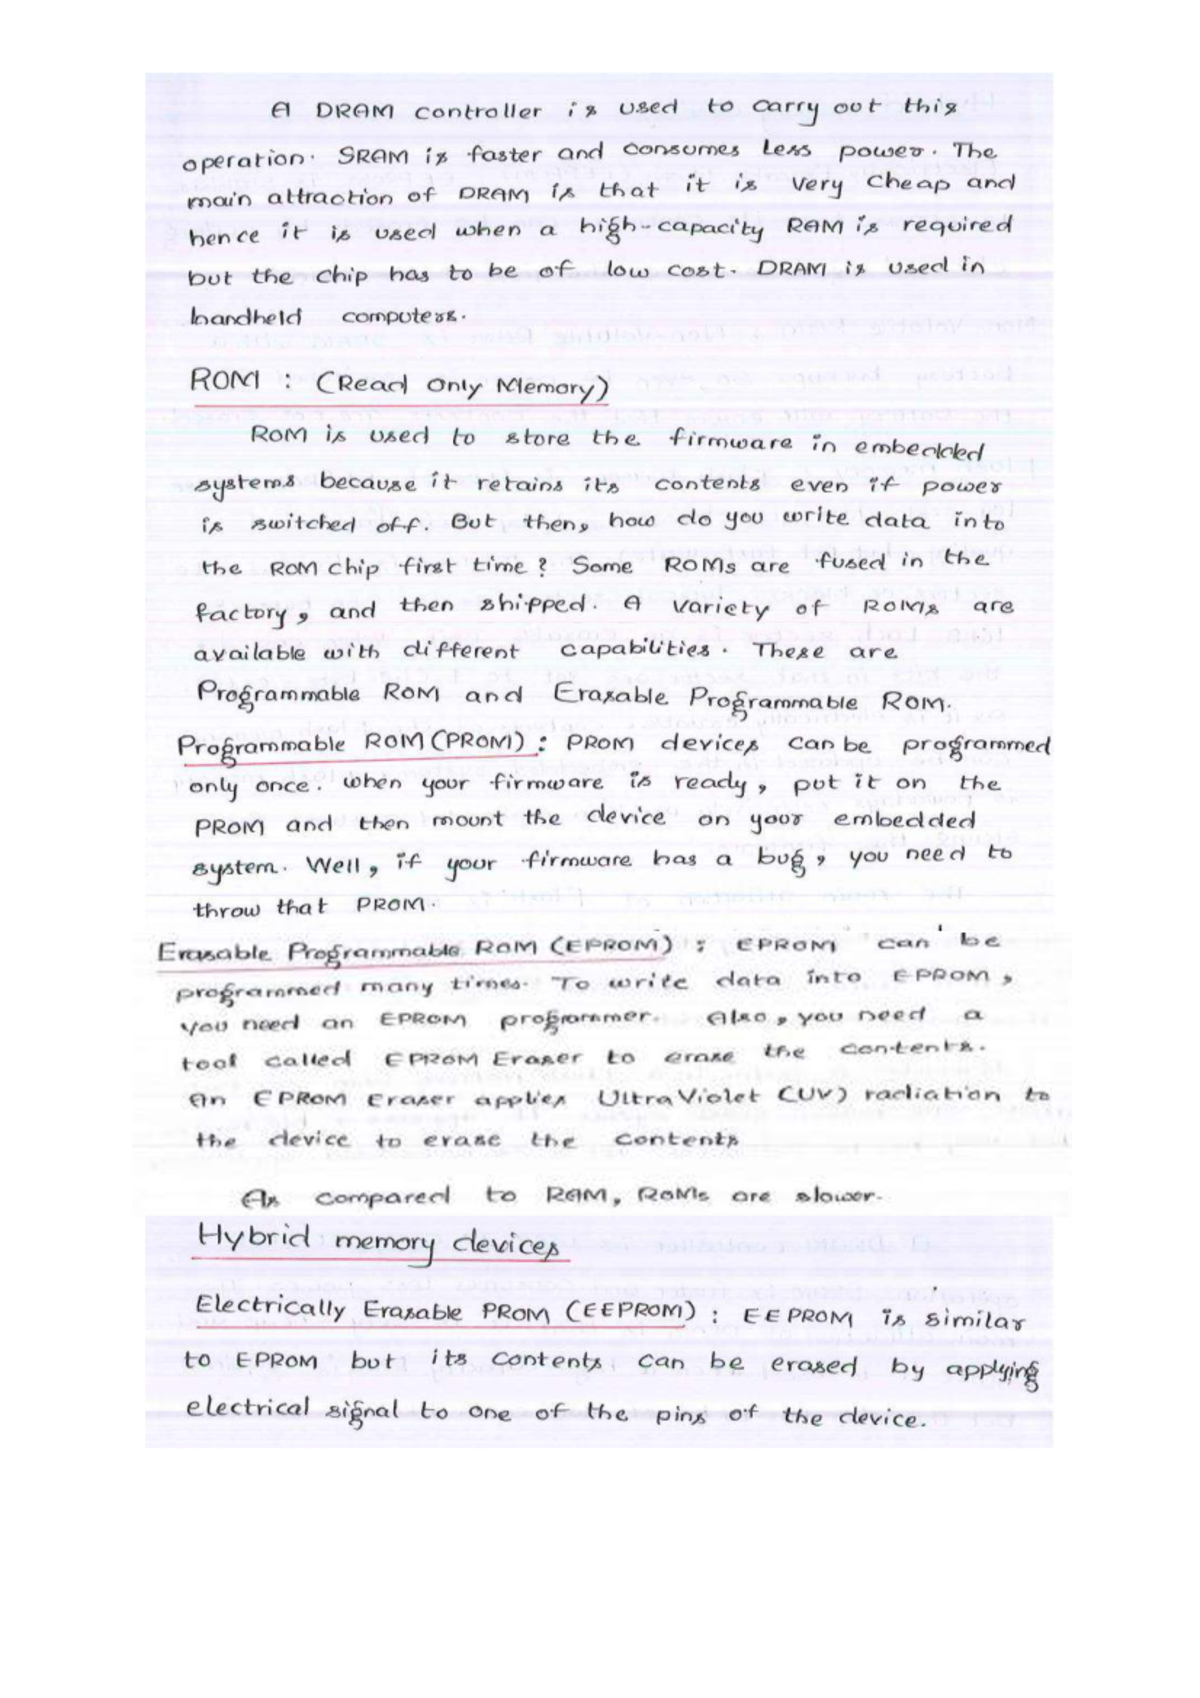 A DRAM controller is used to carry out this
operation. SRAM is faster and consumes less power. The
main attraction of DRAM is that it is very cheap and
hence it is used when a high-capacity RAM is required
but the chip has to be of low cost. DRAM is used in
handheld computers.
ROM : (Read Only Memory)
ROM is used to store the firmware in embedded
systems because it retains its contents even if power
is switched off. But then, how do you write data into
the ROM chip first time? Some ROMs are fused in the
factory, and then shipped. A variety of ROMs are
available with different capabilities. These are
Programmable ROM and Erasable Programmable ROM.
Programmable ROM (PROM) : PROM devices can be programmed
only once. When your firmware is ready, put it on the
PROM and then mount the device on your embedded
system. Well, if your firmware has a bug, you need to
throw that PROM.
Erasable Programmable ROM (EPROM) : EPROM can be
programmed many times. To write data into EPROM,
you need an EPROM programmer. Also, you need a
tool called EPROM Eraser to erase the contents.
An EPROM Eraser applies UltraViolet (UV) radiation to
the device to erase the contents
As compared to RAM, ROMs are slower.
Hybrid memory devices
Electrically Erasable PROM (EEPROM) : EEPROM is similar
to EPROM but its contents can be erased by applying
electrical signal to one of the pins of the device.